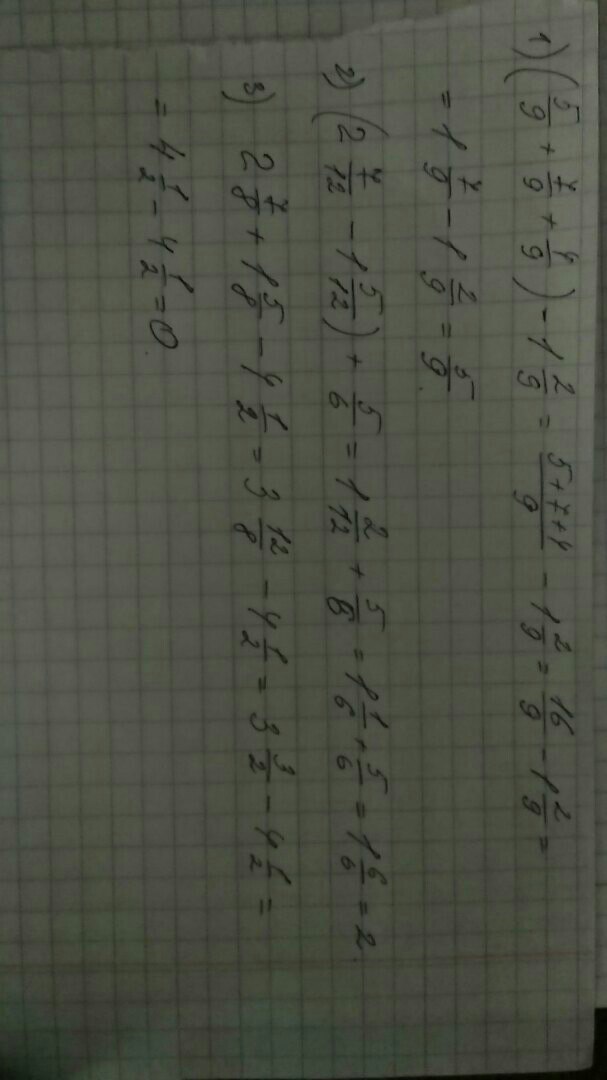 1) (5/9 + 7/9 + 4/9) - 1 2/9 = (5+7+4)/9 - 1 2/9 = 16/9 - 1 2/9 =
= 1 7/9 - 1 2/9 = 5/9.
2) (2 7/12 - 1 5/12) + 5/6 = 1 2/12 + 5/6 = 1 1/6 + 5/6 = 1 6/6 = 2.
3) 2 7/8 + 1 5/8 - 4 1/2 = 3 12/8 - 4 1/2 = 3 3/2 - 4 1/2 =
= 4 1/2 - 4 1/2 = 0.